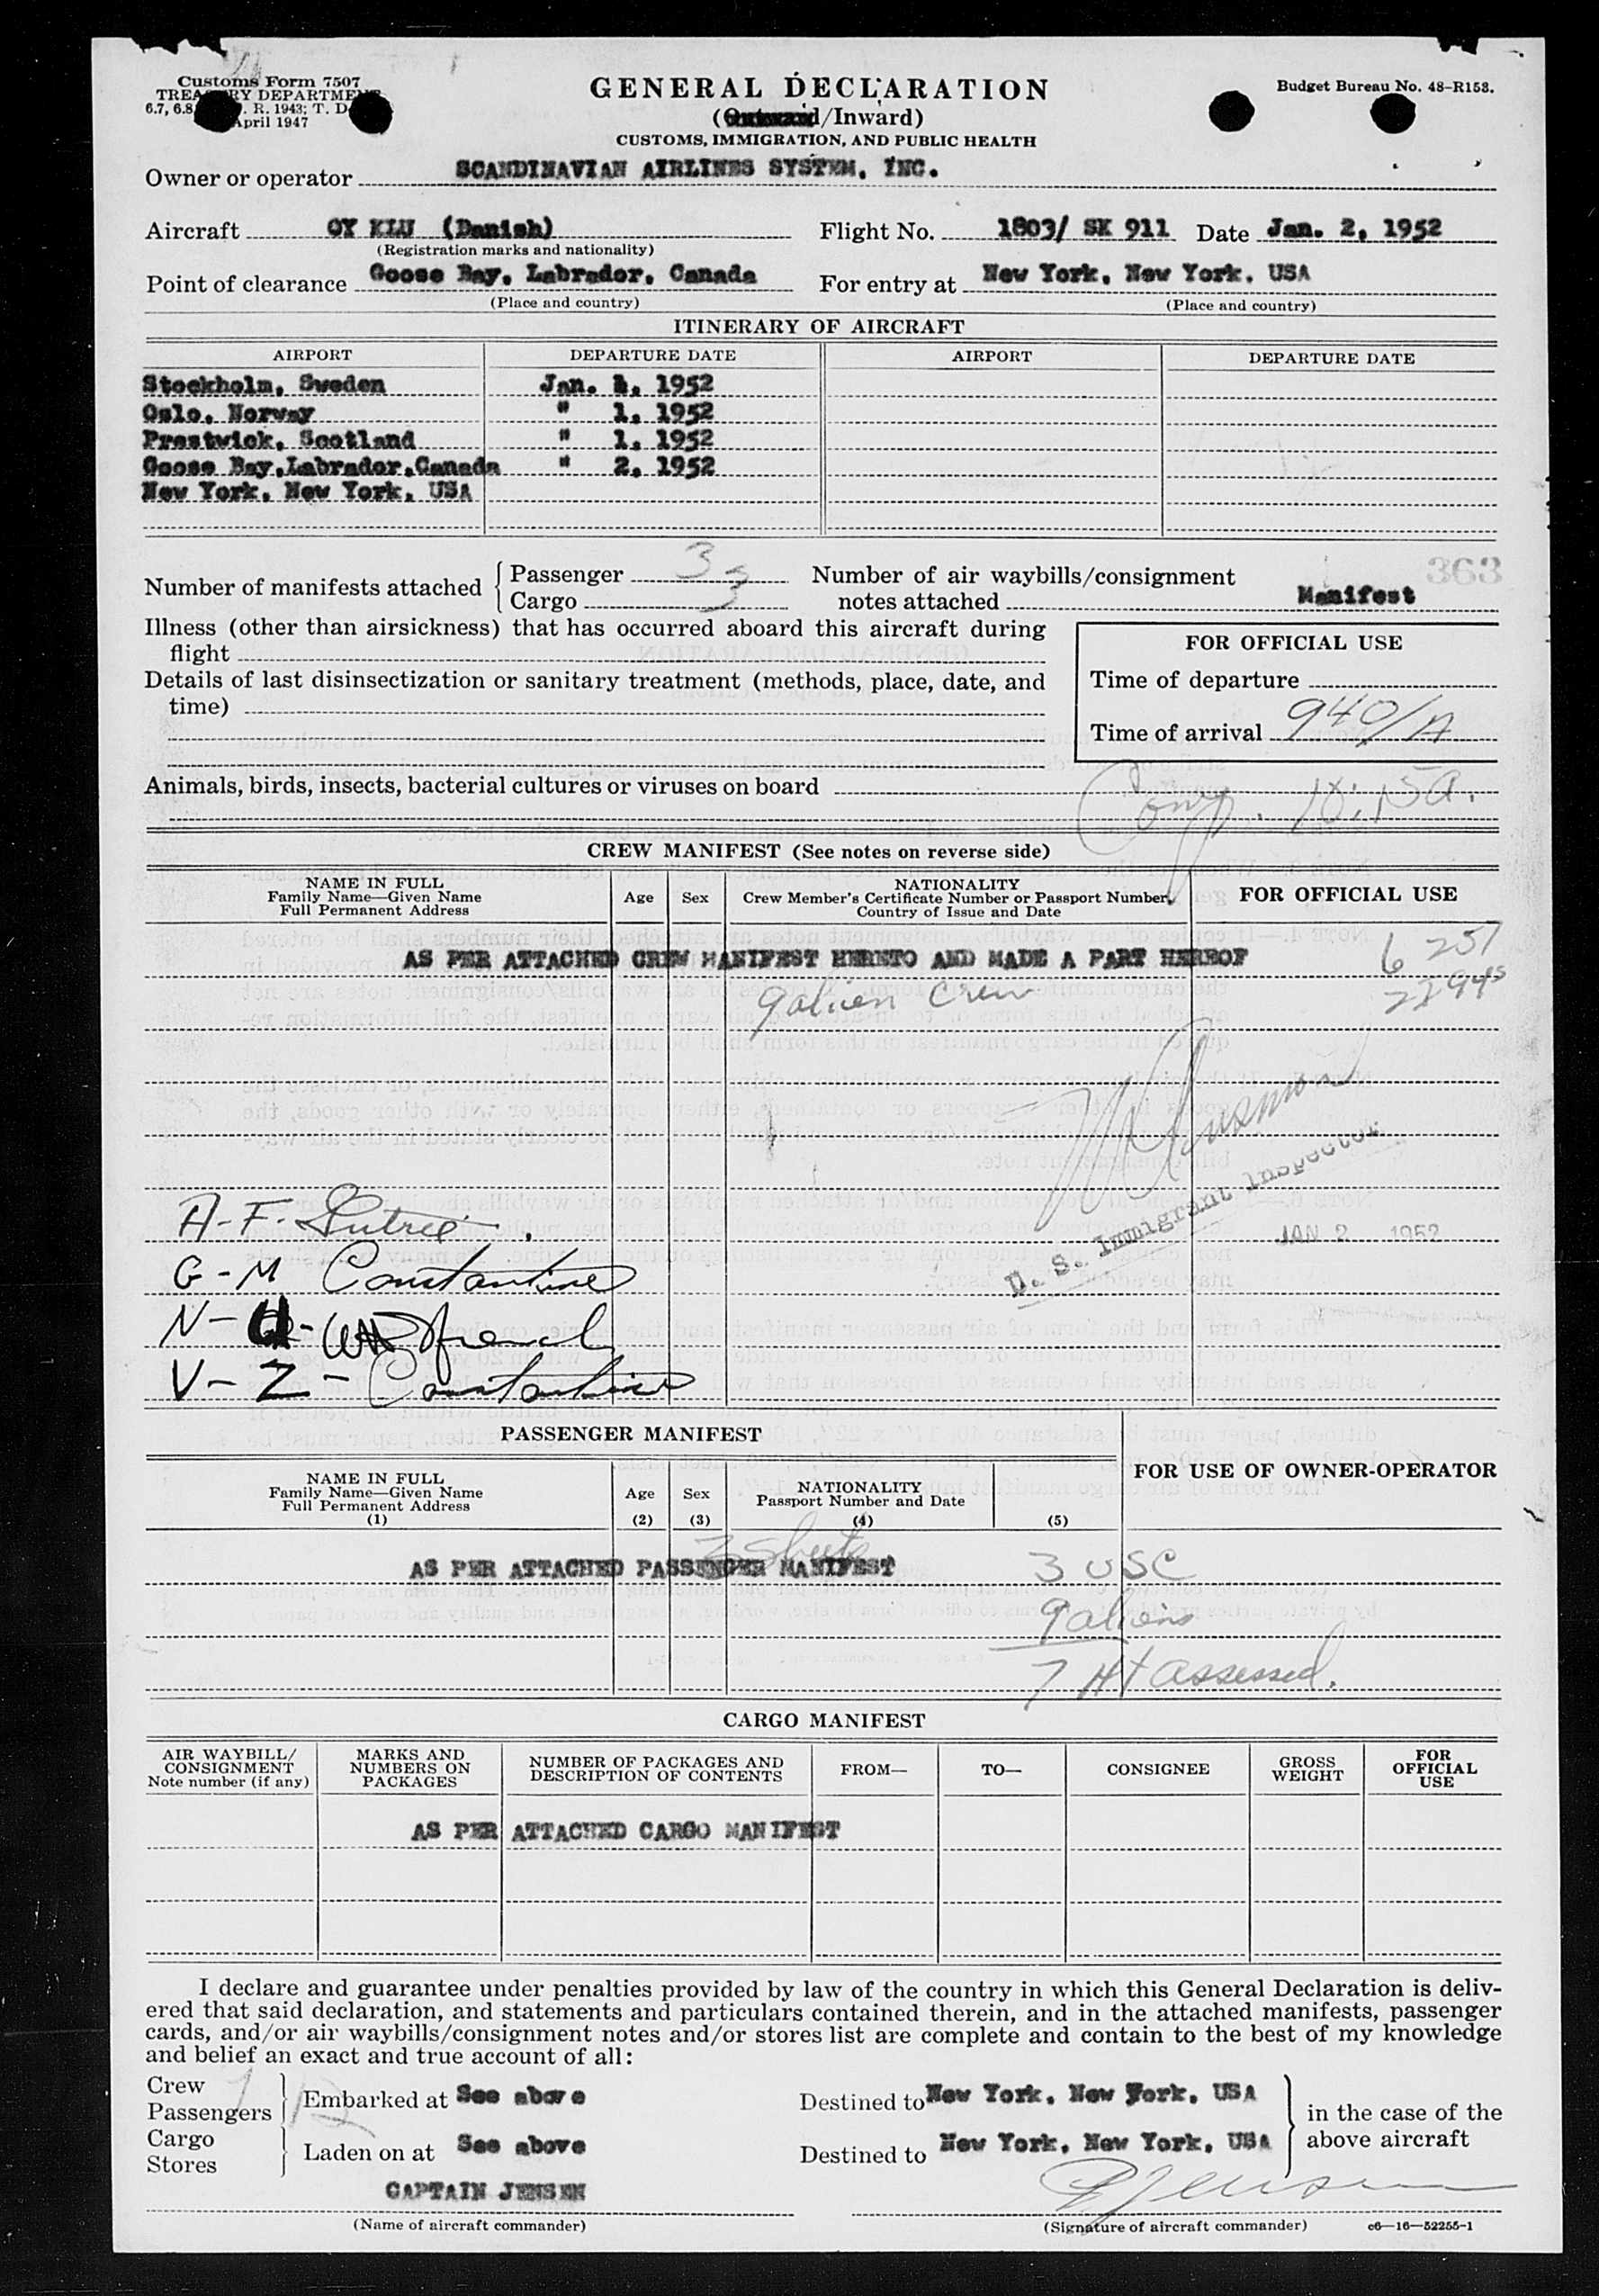 Customs Form 7507
TREASURY DEPARTMENT
6.7, 6.8, R. 1943; T. D.
April 1947
GENERAL DECLARATION
(Outward/Inward)
CUSTOMS, IMMIGRATION, AND PUBLIC HEALTH
Budget Bureau No. 48-R158.
Owner or operator SCANDINAVIAN AIRLINES SYSTEM, INC.
Aircraft OY KLU (Danish) Flight No. 1803/ SK 911 Date Jan. 2, 1952
(Registration marks and nationality)
Point of clearance Goose Bay, Labrador, Canada For entry at New York, New York, USA
(Place and country) (Place and country)
ITINERARY OF AIRCRAFT
AIRPORT DEPARTURE DATE AIRPORT DEPARTURE DATE
Stockholm, Sweden Jan. 1, 1952
Oslo, Norway " 1, 1952
Prestwick, Scotland " 1, 1952
Goose Bay,Labrador,Canada " 2, 1952
New York, New York, USA
363
Number of manifests attached { Passenger 3 Number of air waybills/consignment
Cargo 3 notes attached Manifest
Illness (other than airsickness) that has occurred aboard this aircraft during
flight
Details of last disinsectization or sanitary treatment (methods, place, date, and
time)
FOR OFFICIAL USE
Time of departure
Time of arrival 940/A
Animals, birds, insects, bacterial cultures or viruses on board
CREW MANIFEST (See notes on reverse side)
NAME IN FULL
Family Name—Given Name
Full Permanent Address
Age Sex
NATIONALITY
Crew Member's Certificate Number or Passport Number,
Country of Issue and Date
FOR OFFICIAL USE
AS PER ATTACHED CREW MANIFEST HERETO AND MADE A PART HEREOF
9 alien Crew
U. S. Immigrant Inspector
JAN 2 1952
A-F-
G-M Constantine
N-
V-Z- Constantine
PASSENGER MANIFEST
NAME IN FULL
Family Name—Given Name
Full Permanent Address
(1)
Age
(2)
Sex
(3)
NATIONALITY
Passport Number and Date
(4)
(5)
FOR USE OF OWNER-OPERATOR
3 sheets
AS PER ATTACHED PASSENGER MANIFEST 3 USC
9 aliens
7 HT assessed.
CARGO MANIFEST
AIR WAYBILL/
CONSIGNMENT
Note number (if any)
MARKS AND
NUMBERS ON
PACKAGES
NUMBER OF PACKAGES AND
DESCRIPTION OF CONTENTS
FROM— TO— CONSIGNEE
GROSS
WEIGHT
FOR
OFFICIAL
USE
AS PER ATTACHED CARGO MANIFEST
I declare and guarantee under penalties provided by law of the country in which this General Declaration is deliv-
ered that said declaration, and statements and particulars contained therein, and in the attached manifests, passenger
cards, and/or air waybills/consignment notes and/or stores list are complete and contain to the best of my knowledge
and belief an exact and true account of all:
Crew
Passengers
Embarked at See above Destined to New York, New York, USA
Cargo
Stores
Laden on at See above Destined to New York, New York, USA
in the case of the
above aircraft
CAPTAIN JENSEN
(Name of aircraft commander) (Signature of aircraft commander) c6—16—52255-1